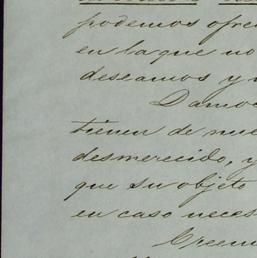 podemos ofre
en la que no
deseamos y
Damo
tienen de nue
desmerecido, y
que su objeto
en caso neces
Creem